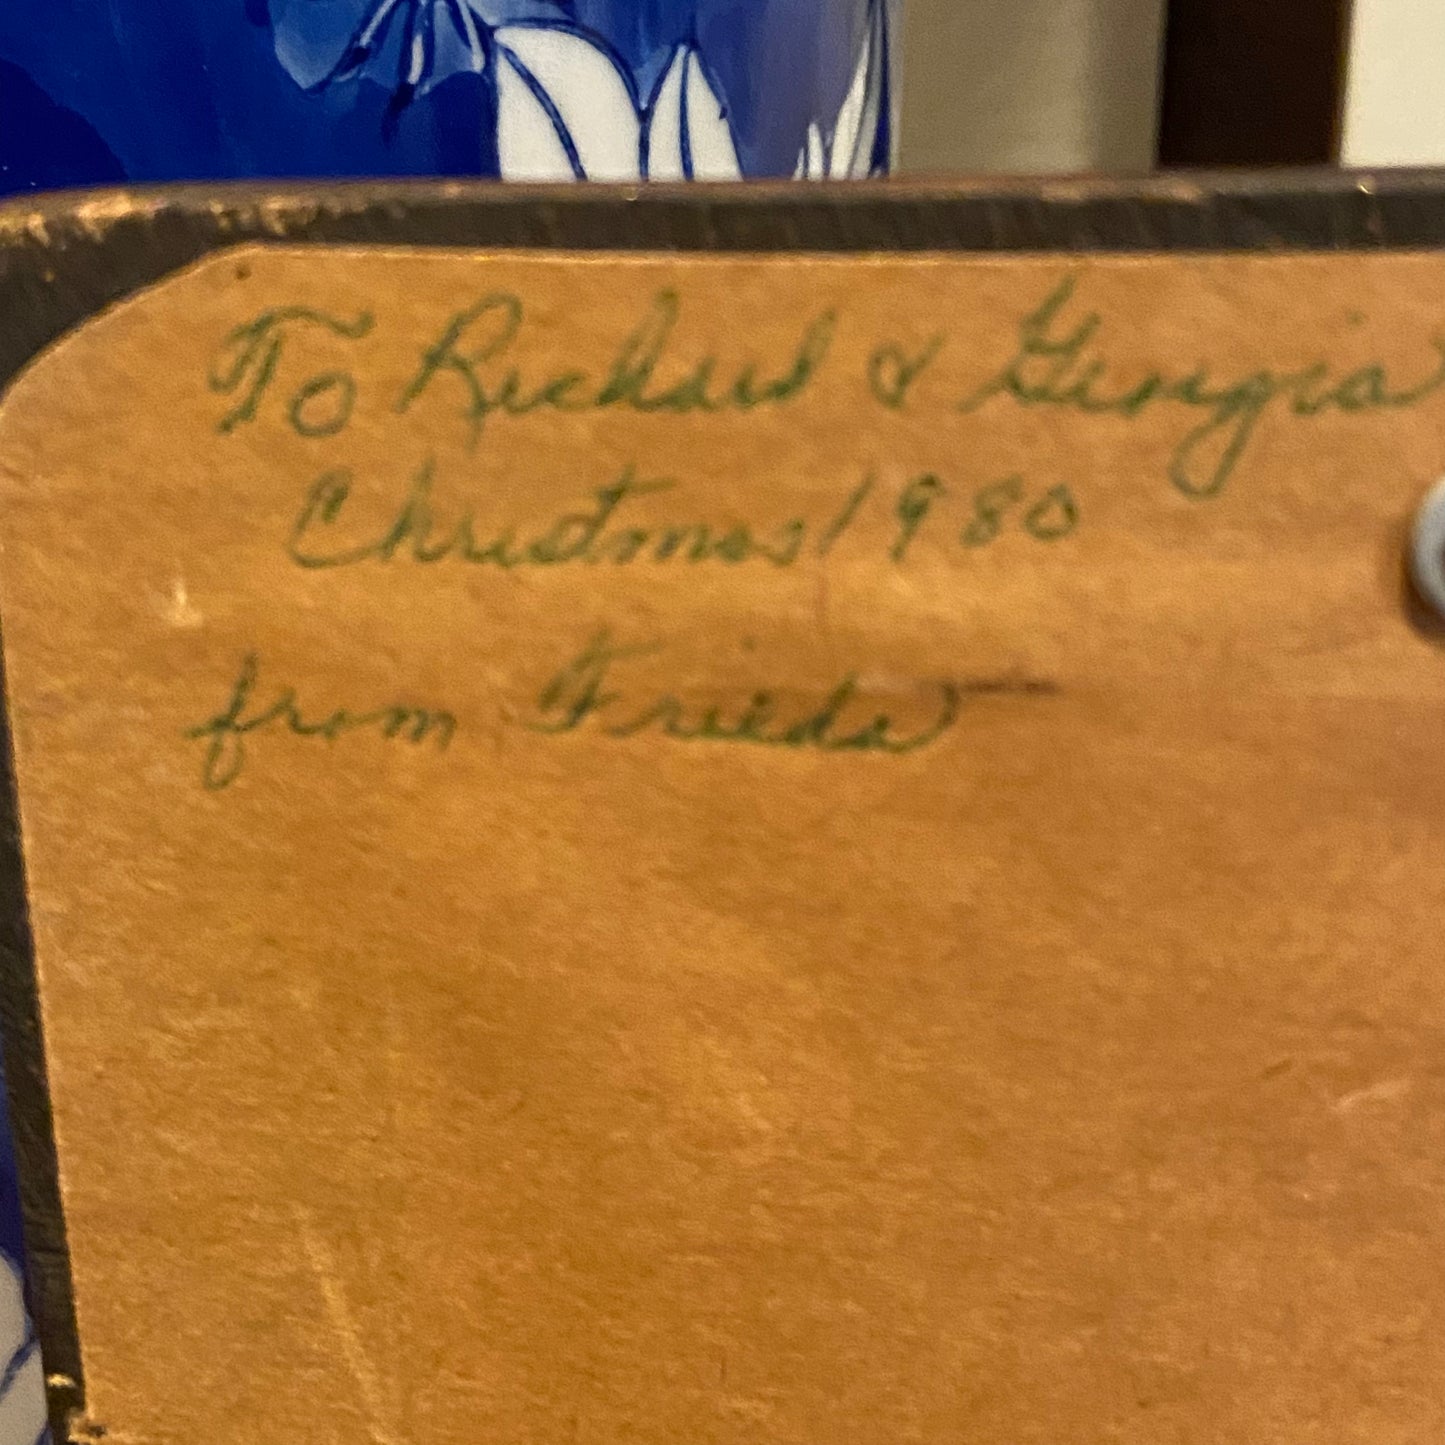 To Richard & Georgia
Christmas 1980
from Frieda